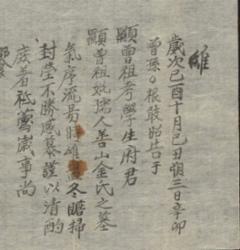 維
歲次己酉十月己丑朔三日辛卯
曾孫根敢昭告于
顯曾祖考學生府君
顯曾祖妣孺人善山金氏之墓
氣序流易時維孟冬瞻掃
封塋不勝感慕謹以清酌
庶羞祗薦歲事尚